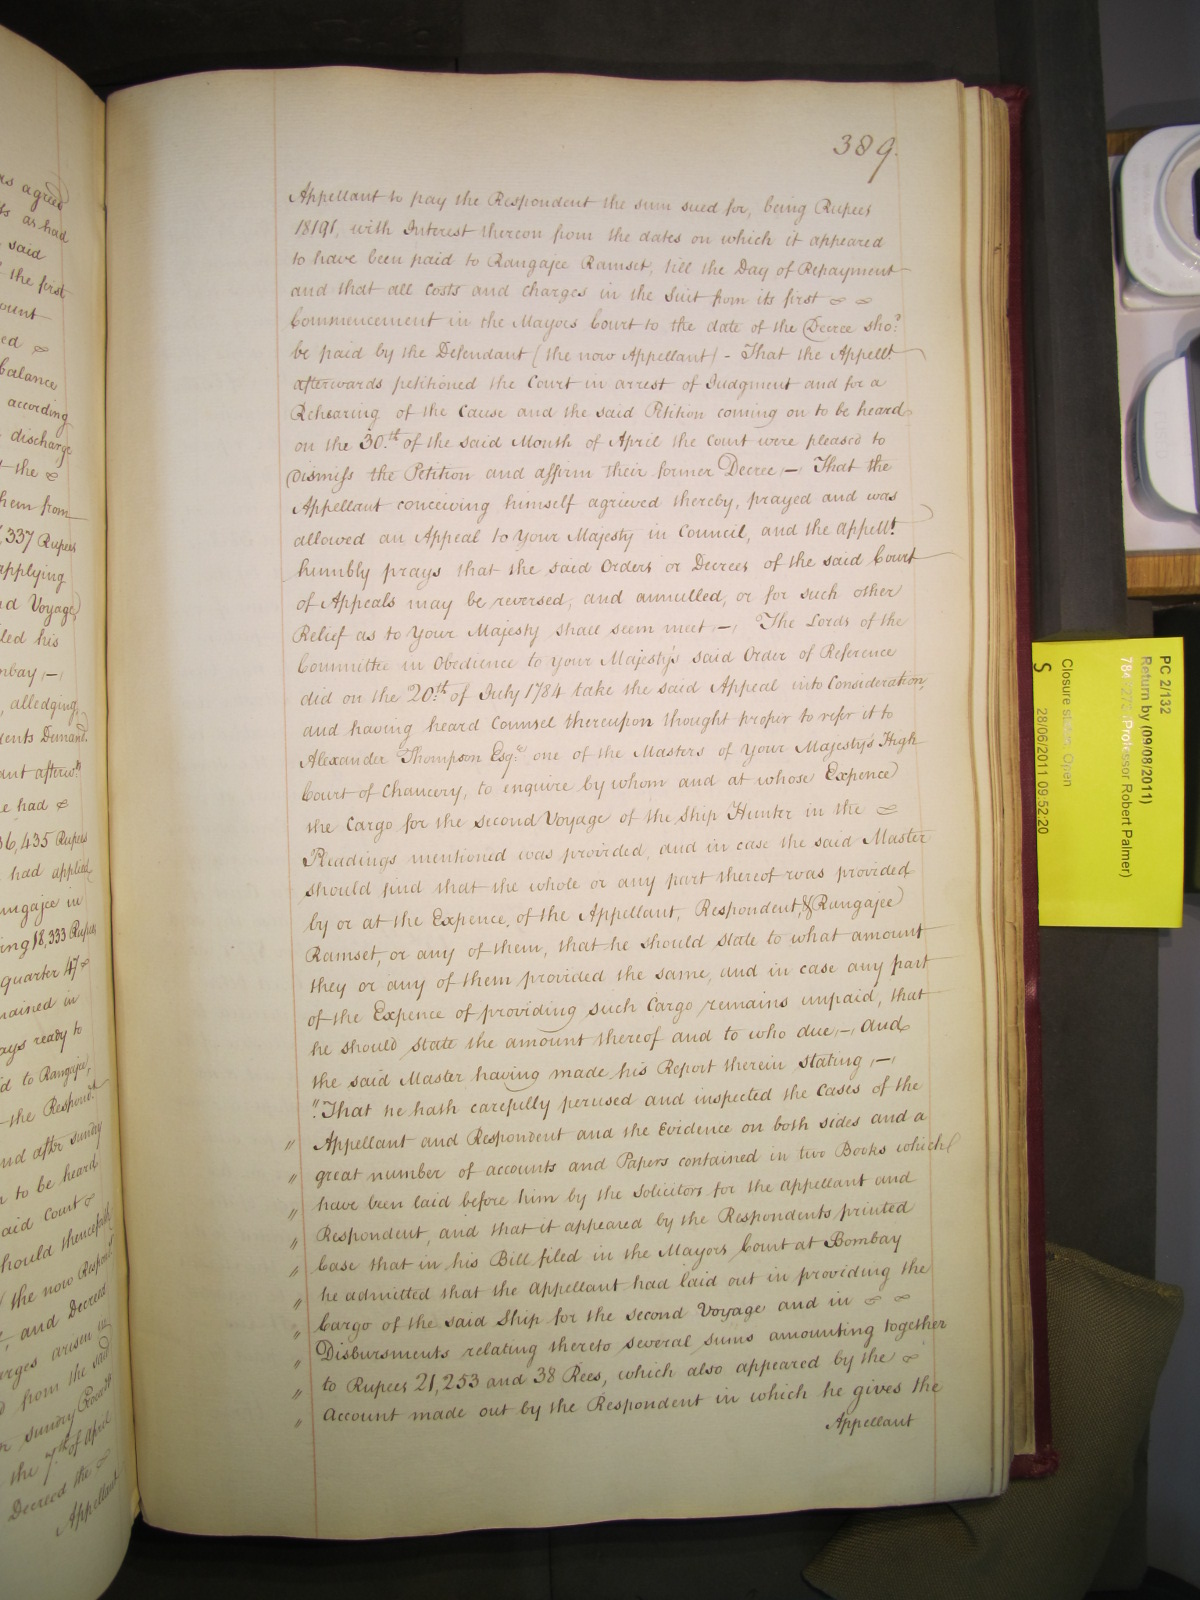 389.
Appellant to pay the Respondent the sum sued for, being Rupees
18191, with Interest thereon from the dates on which it appeared
to have been paid to Rangajee Ramset, till the Day of Repayment
and that all Costs and Charges in the Suit from its first
Commencement in the Mayors Court to the date of the Decree sho.d
be paid by the Defendant (the now Appellant) - That the Appellt
afterwards petitioned the Court in arrest of Judgment and for a
Rehearing of the Cause and the said Petition coming on to be heard
on the 30.th of the said Month of April the Court were pleased to
Dismiss the Petition and affirm their former Decree,—, That the
Appellant conceiving himself agrieved thereby, prayed and was
allowed an Appeal to Your Majesty in Council, and the appellt.
humbly prays that the said Orders or Decrees of the said Court
of Appeals may be reversed, and annulled, or for such other
Relief as to Your Majesty shall seem meet,—, The Lords of the
Committee in Obedience to Your Majesty's said Order of Reference
did on the 20.th of July 1784 take the said Appeal into Consideration,
and having heard Counsel thereupon thought proper to refer it to
Alexander Thompson Esq.r one of the Masters of Your Majesty's High
Court of Chancery, to enquire by whom and at whose Expence
the Cargo for the second Voyage of the Ship Hunter in the
Pleadings mentioned was provided, and in case the said Master
should find that the whole or any part thereof was provided
by or at the Expence, of the Appellant, Respondent, & Rangajee
Ramset, or any of them, that he should state to what amount
they or any of them provided the same, and in case any part
of the Expence of providing such Cargo remains unpaid, that
he should state the amount thereof and to who due,—, and
the said Master having made his Report therein stating,—,
"That he hath carefully perused and inspected the Cases of the
" Appellant and Respondent and the Evidence on both sides and a
" great number of accounts and Papers contained in two Books which
" have been laid before him by the Solicitors for the appellant and
" Respondent, and that it appeared by the Respondents printed
" Case that in his Bill filed in the Mayors Court at Bombay
" he admitted that the appellant had laid out in providing the
" Cargo of the said Ship for the second Voyage and in
" Disbursments relating thereto several sums amounting together
" to Rupees 21,253 and 38 Rees, which also appeared by the
" Account made out by the Respondent in which he gives the
Appellant
agreed
as had
said
the first
ed
Balance
according
discharge
the
them from
,337 Rupees
applying
Voyage
his
,—,
, alledging,
Demand.
had
36,435 Rupees
had applied
in
18,333 Rupees
quarter 47
in
ready to
to Rangajee,
the Respond.t
and after sundry
to be heard
said Court
should
the now
and Decreed
arisen in
from the said
sundry
the 7.th of April
Decreed the
Appellant
PC 2/132
Return by (09/08/2011)
Professor Robert Palmer)
Closure status: Open
S
28/06/2011 09:52:20